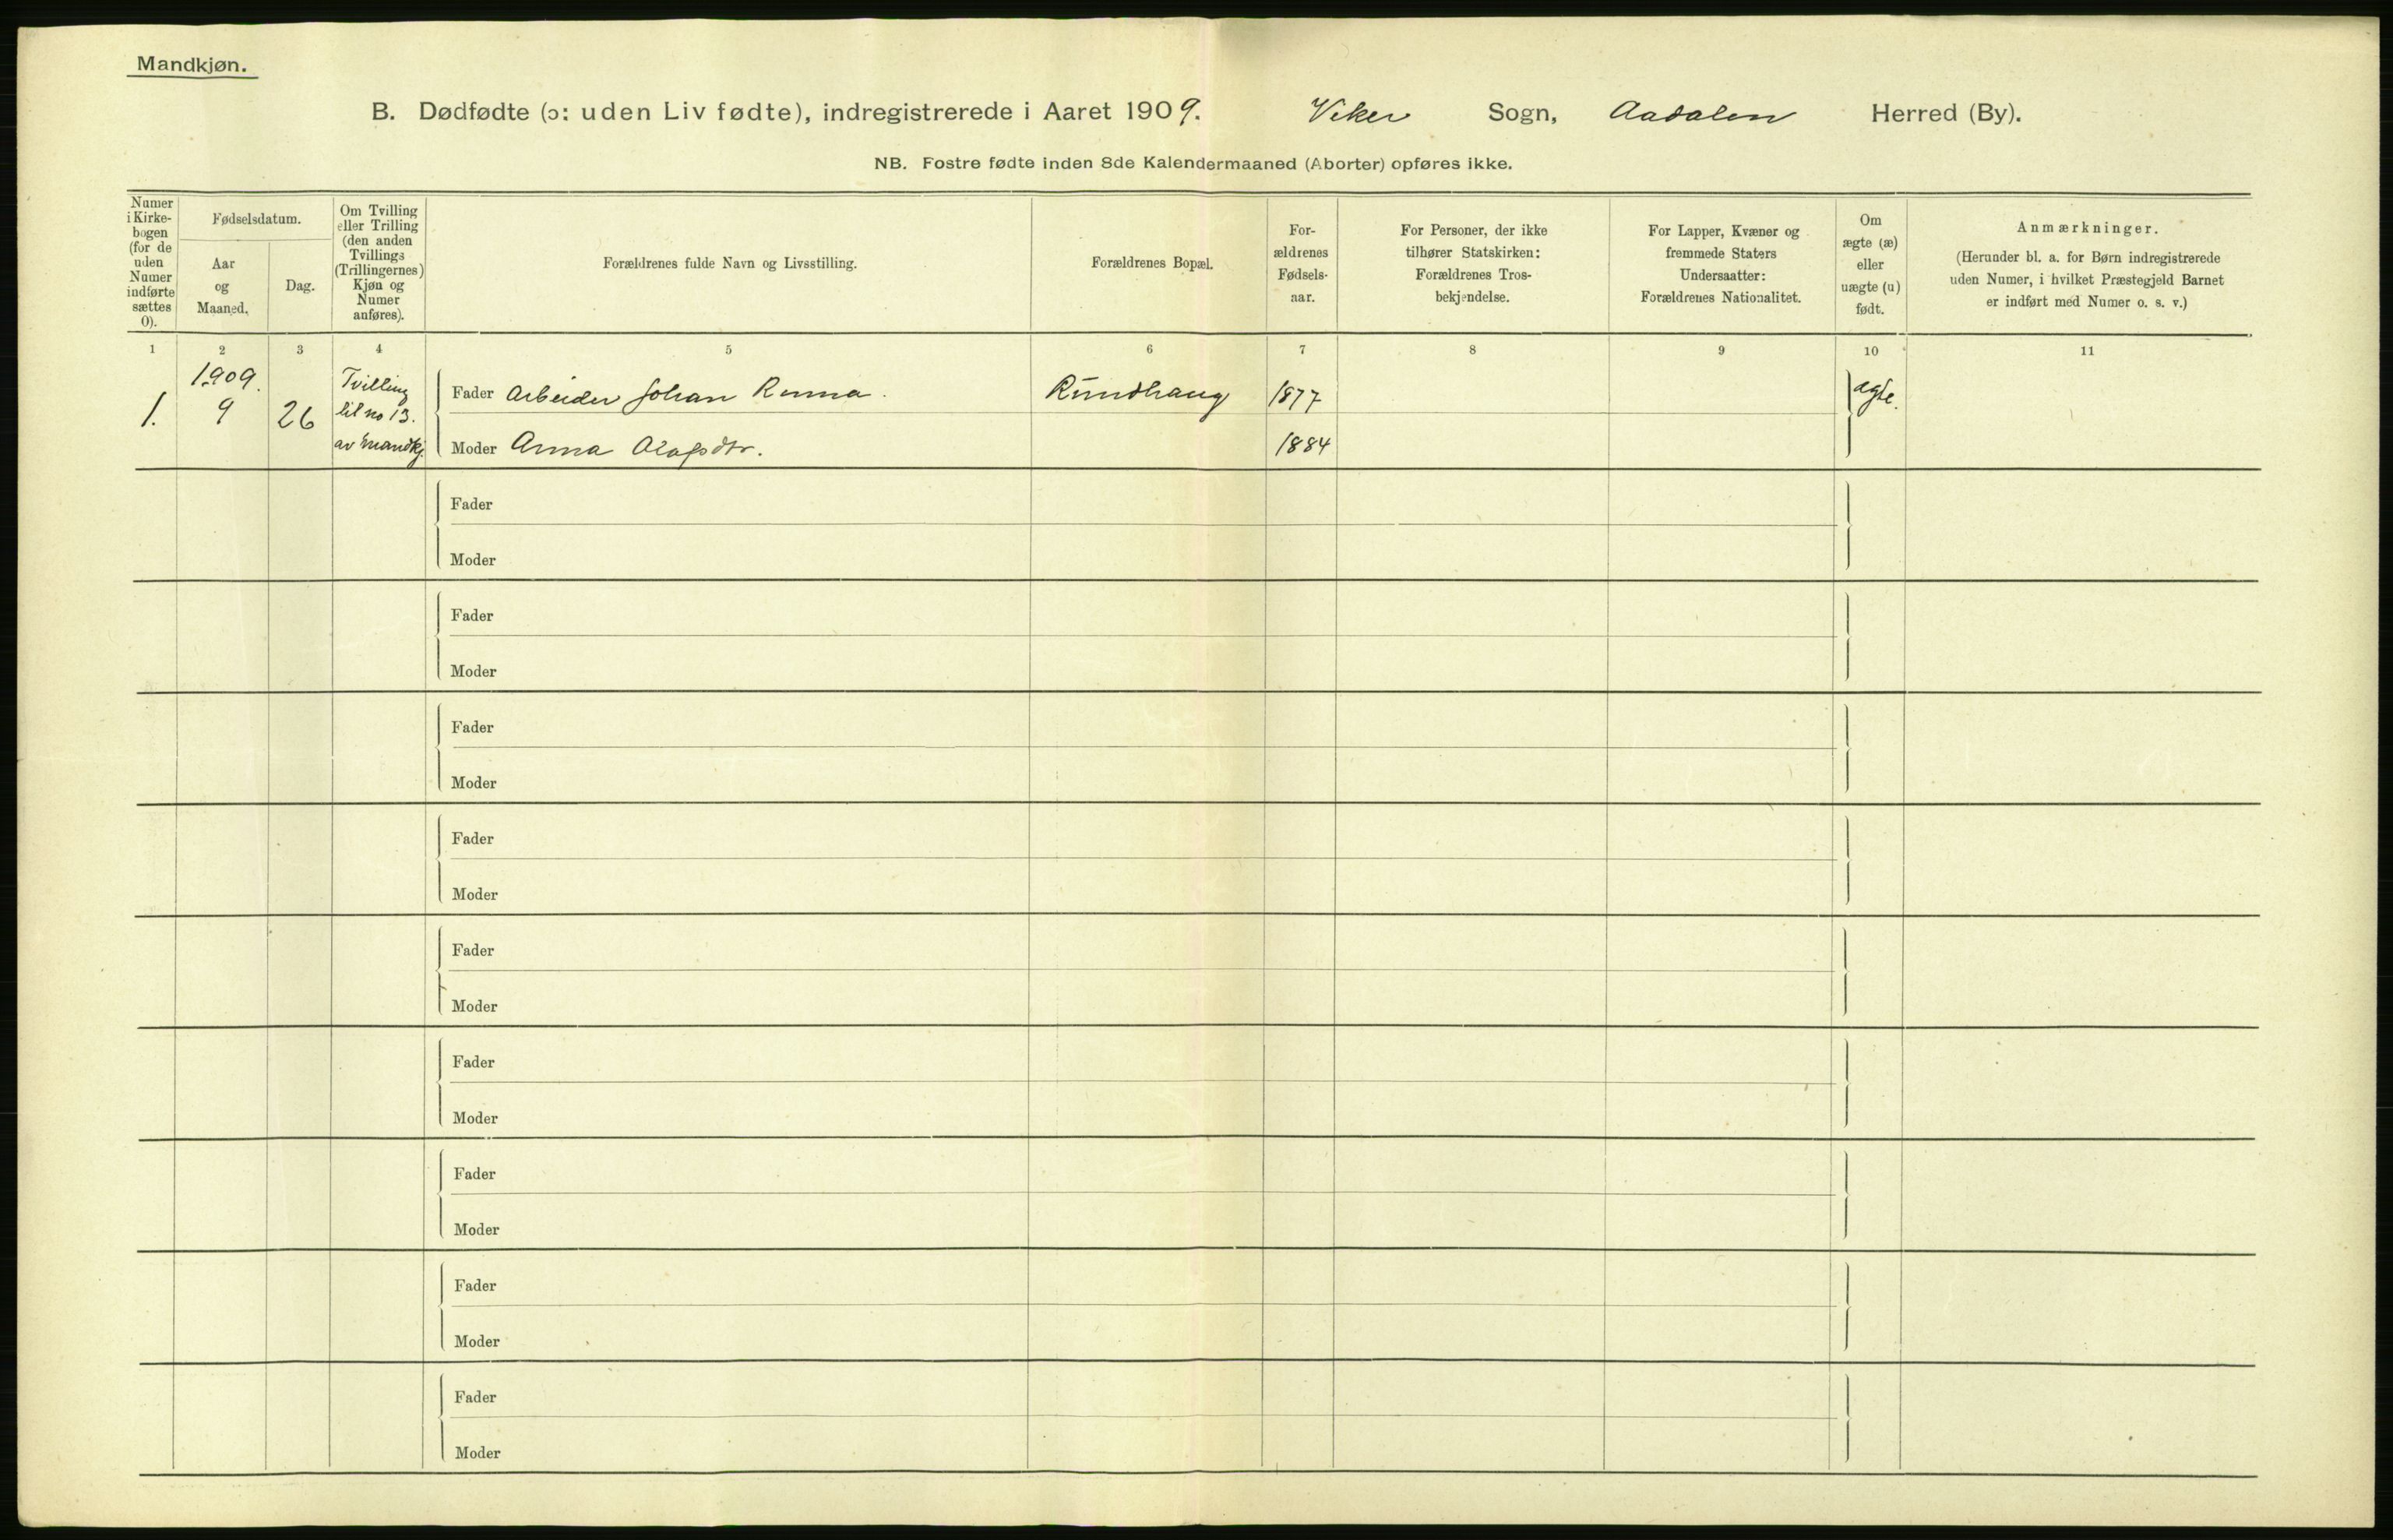 Mandkjøn.
B. Dødfødte (ɔ: uden Liv fødte), indregistrerede i Aaret 1909. Viker Sogn, Aadalen Herred (By).
NB. Fostre fødte inden 8de Kalendermaaned (Aborter) opføres ikke.
Numer
i Kirke-
bogen
(for de
uden
Numer
indførte
sættes
0).
Fødselsdatum.
Aar
og
Maaned.
Dag.
Om Tvilling
eller Trilling
(den anden
Tvillings
(Trillingernes)
Kjøn og
Numer
anføres).
Forældrenes fulde Navn og Livsstilling.
Forældrenes Bopæl.
For-
ældrenes
Fødsels-
aar.
For Personer, der ikke
tilhører Statskirken:
Forældrenes Tros-
bekjendelse.
For Lapper, Kvæner og
fremmede Staters
Undersaatter:
Forældrenes Nationalitet.
Om
ægte (æ)
eller
uægte (u)
født.
Anmærkninger.
(Herunder bl. a. for Børn indregistrerede
uden Numer, i hvilket Præstegjeld Barnet
er indført med Numer o. s. v.)
1 2 3 4 5 6 7 8 9 10 11
1.
1909.
9
26
Tvilling
til no 13.
av mandkj.
Fader Arbeider Johan Runna. Rundhaug 1877
Moder Anna Olafsdtr. 1884
ægte.
Fader
Moder
Fader
Moder
Fader
Moder
Fader
Moder
Fader
Moder
Fader
Moder
Fader
Moder
Fader
Moder
Fader
Moder